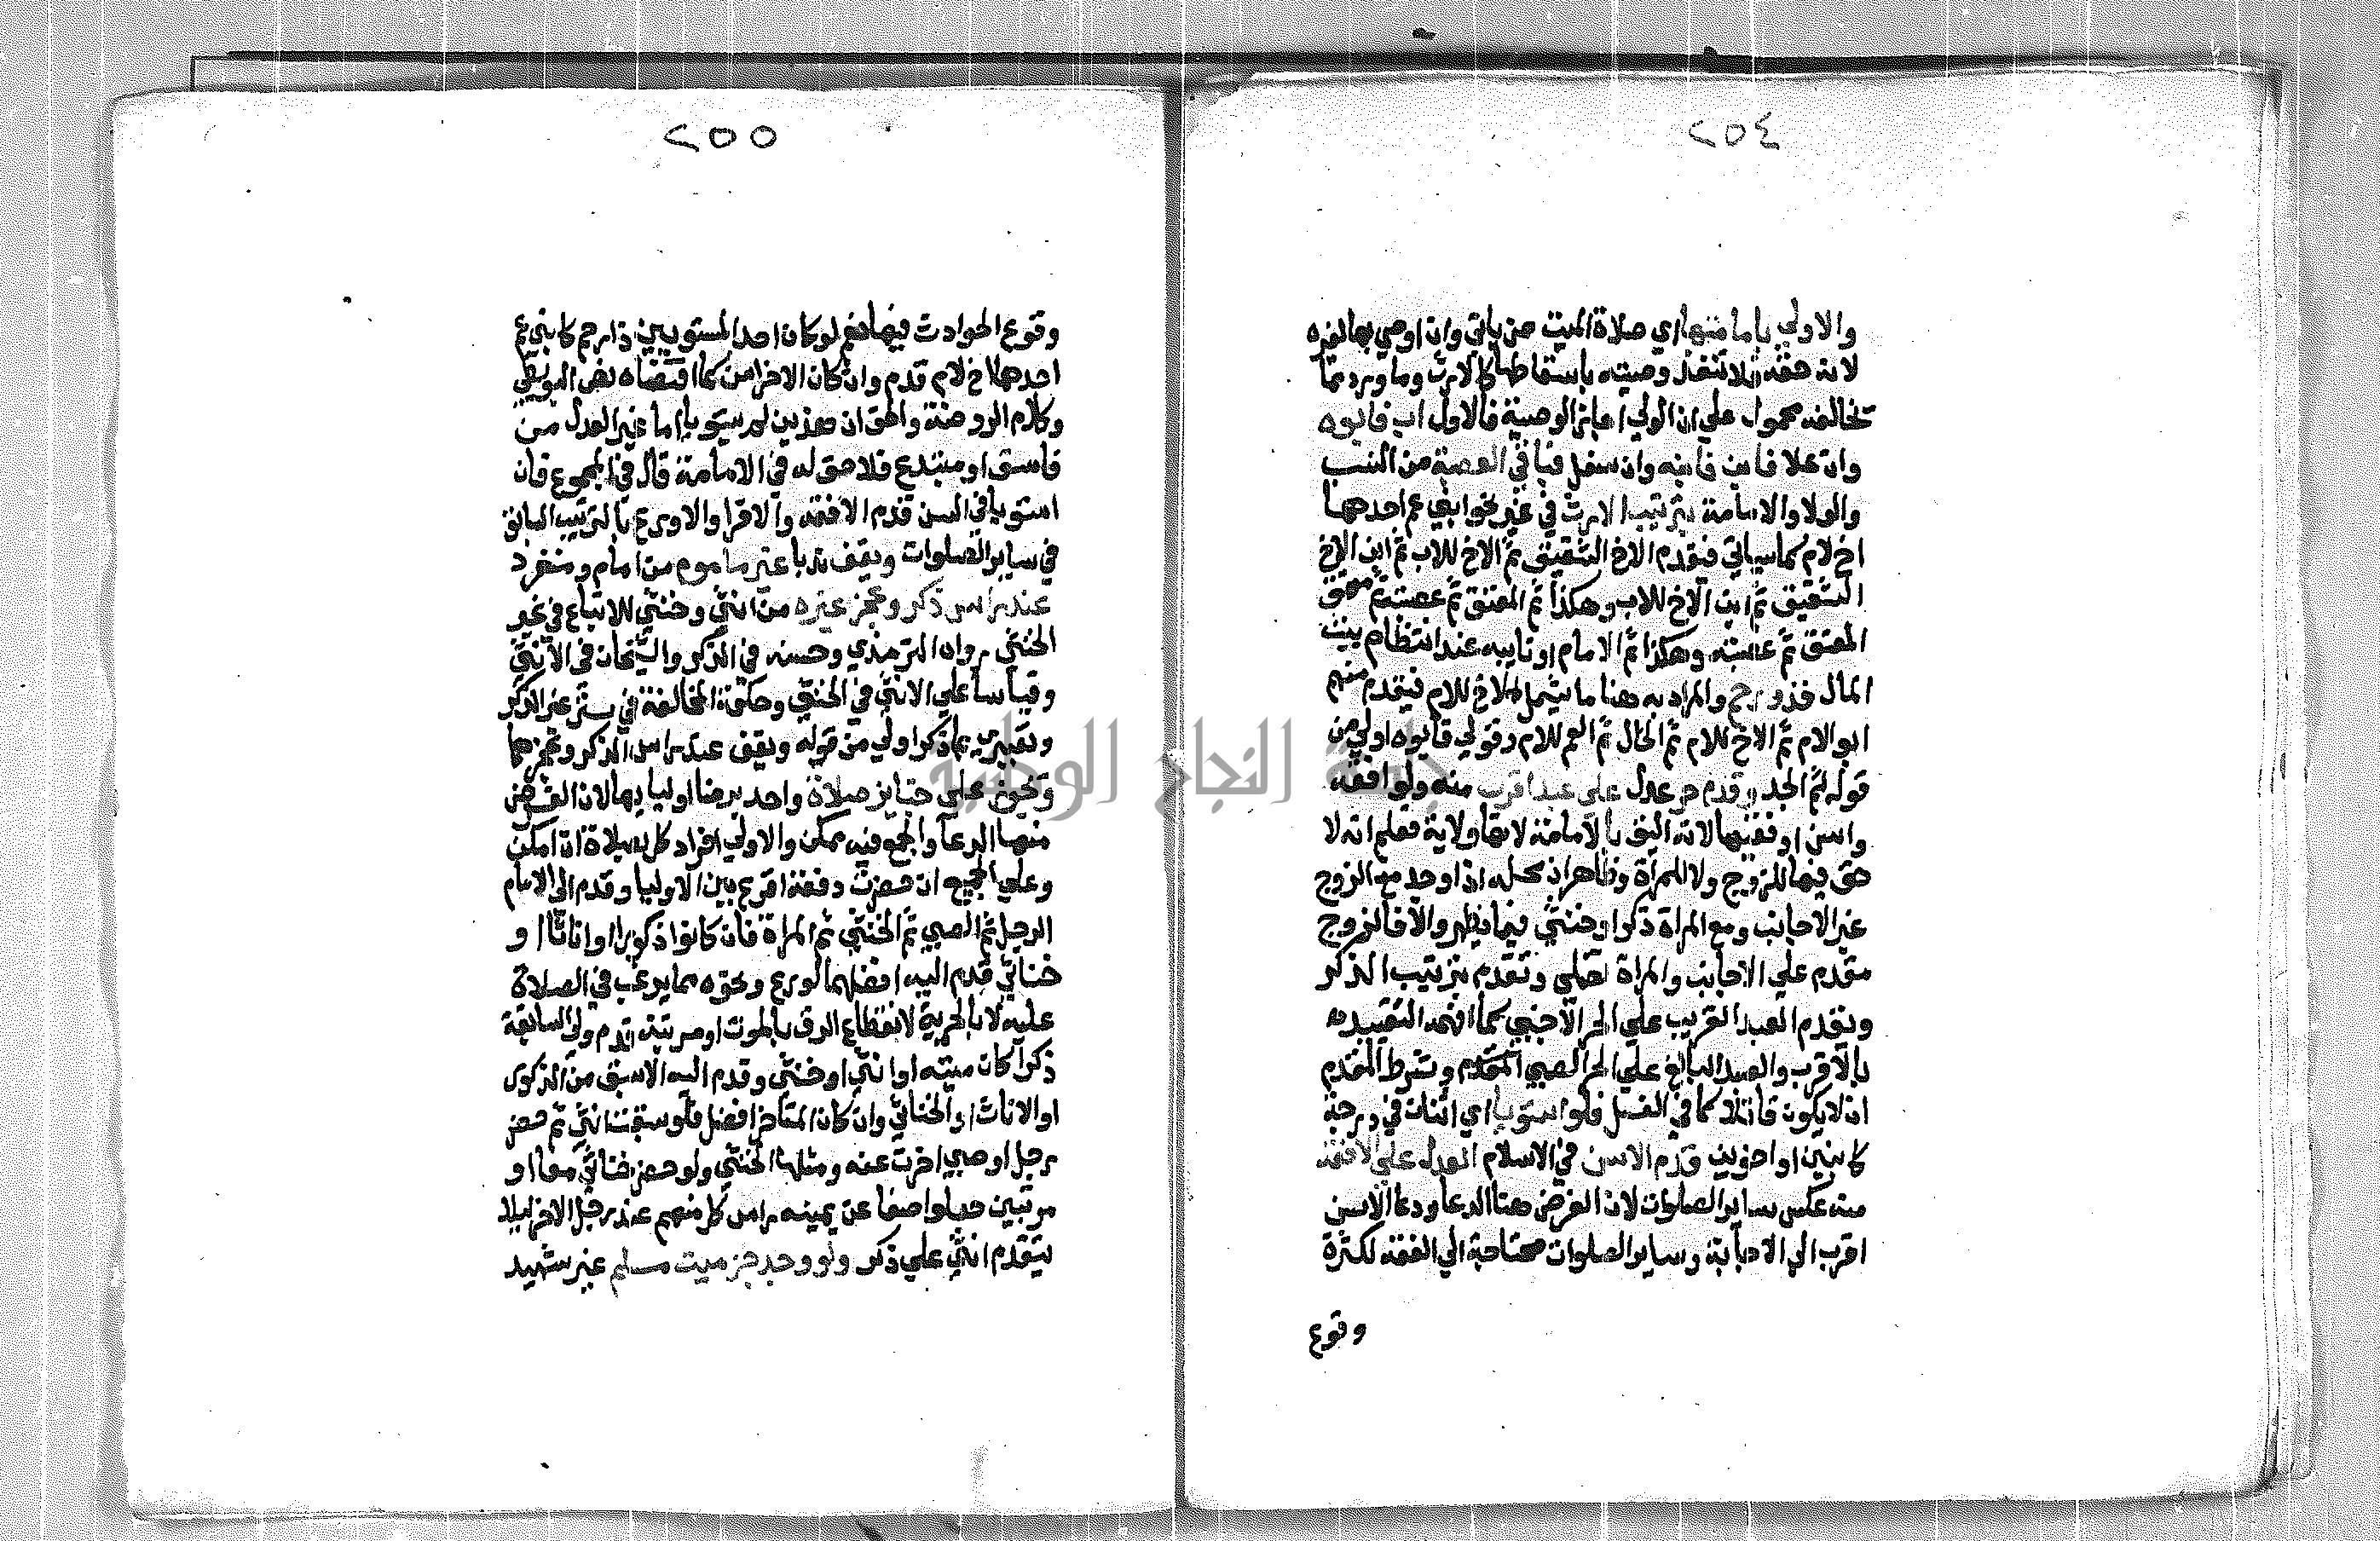 ٢٥٤
والاولي بامامتها اي صلاة الميت من ياتي وان اوصي بها لغيره
لانه حقه فلا تنفذ وصيته باسقاطها كالارث وما ورد مما
يخالفه محمول علي ان الولي اجاز الوصية فالاولي اب فابوه
وان علا فابن فابنه وان سفل فباقي العصبة من النسب
والولا والامامة بترتيب الارث في غير نحو ابني عم احدهما
اخ لام كما سياتي فيقدم الاخ الشقيق ثم الاخ للاب ثم ابن الاخ
الشقيق ثم ابن الاخ للاب وهكذا ثم المعتق ثم عصبته ثم معتق
المعتق ثم عصبته وهكذا ثم الامام او نايبه عند انتظام بيت
المال فذو رحم والمراد به هنا ما يشمل الاخ للام فيقدم منهم
ابو الام ثم الاخ للام ثم الخال ثم العم للام وقولي فابوه اولي من
قوله ثم الجد وقدم حر عدل علي عبد اقرب منه ولو افقه
واسن او فقيها لانه اليق بالامامة لانها ولاية فعلم انه لا
حق فيها للزوج ولا للمراة وظاهر ان محله اذا وجد مع الزوج
غير الاجانب ومع المراة ذكر او خنثي فيما يظهر والا فالزوج
مقدم علي الاجانب والمراة تصلي وتقدم بترتيب الذكر
ويقدم العبد القريب علي الحر الاجنبي كما افهمه التقييد
بالاقرب والعبد البالغ علي الحر الصبي المتقدم وشرط المقدم
ان لا يكون قاتلا كما في الغسل فلو استويا اي اثنان في درجة
كابنين او اخوين قدم الاسن في الاسلام العدل علي الافقه
منه عكس ساير الصلوات لان الغرض هنا الدعا ودعا الاسن
اقرب الي الاجابة وساير الصلوات محتاجة الي الفقه لكثرة
وقوع
٢٥٥
وقوع الحوادث فيها نعم لو كان احد المستويين ذا رحم كابني عم
احدهما اخ لام قدم وان كان الاخر اسن كما اقتضاه نص البويطي
وكلام الروضة والحق ان هذين لم يستويا اما غير العدل من
فاسق او مبتدع فلا حق له في الامامة قال في المجموع فان
استويا في السن قدم الافقه والاقرا والاورع بالترتيب السابق
في ساير الصلوات ويقف ندبا غير ماموم من امام ومنفرد
عند راس ذكر وعجز غيره من انثي وخنثي للاتباع في غير
الخنثي رواه الترمذي وحسنه في الذكر والشيخان في الانثي
وقياسا علي الانثي في الخنثي وحكمة المخالفة في ستر عن الذكر
وتعبيري بما ذكر اولي من قوله ويقف عند راس الذكر وعجزها
وتجوز علي جنايز صلاة واحد برضا اوليايها لان الغرض
منها الدعا والجمع فيه ممكن والاولي افراد كل بصلاة ان امكن
وعلي الجميع ان حضرت دفعة اقرع بين الاوليا وقدم الي الامام
الرجل ثم الصبي ثم الخنثي ثم المراة فان كانوا ذكورا او اناثا او
خناثي قدم اليه افضلهم بالورع ونحوه مما يرغب في الصلاة
عليه لا بالحرية لانقطاع الرق بالموت او مرتبة قدم ولي السابقة
ذكرا كان ميته او انثي او خنثي وقدم اليه الاسبق من الذكور
او الاناث او الخناثي وان كان المتاخر افضل فلو سبقت انثي ثم حضر
رجل او صبي اخرت عنه ومثلها الخنثي ولو حضر خناثي معا او
مرتبين جعلوا صفا عن يمينه راس كل منهم عند رجل الاخر ليلا
يتقدم انثي علي ذكر ولو وجد جزء ميت مسلم غير شهيد
جامعة النجاح الوطنية